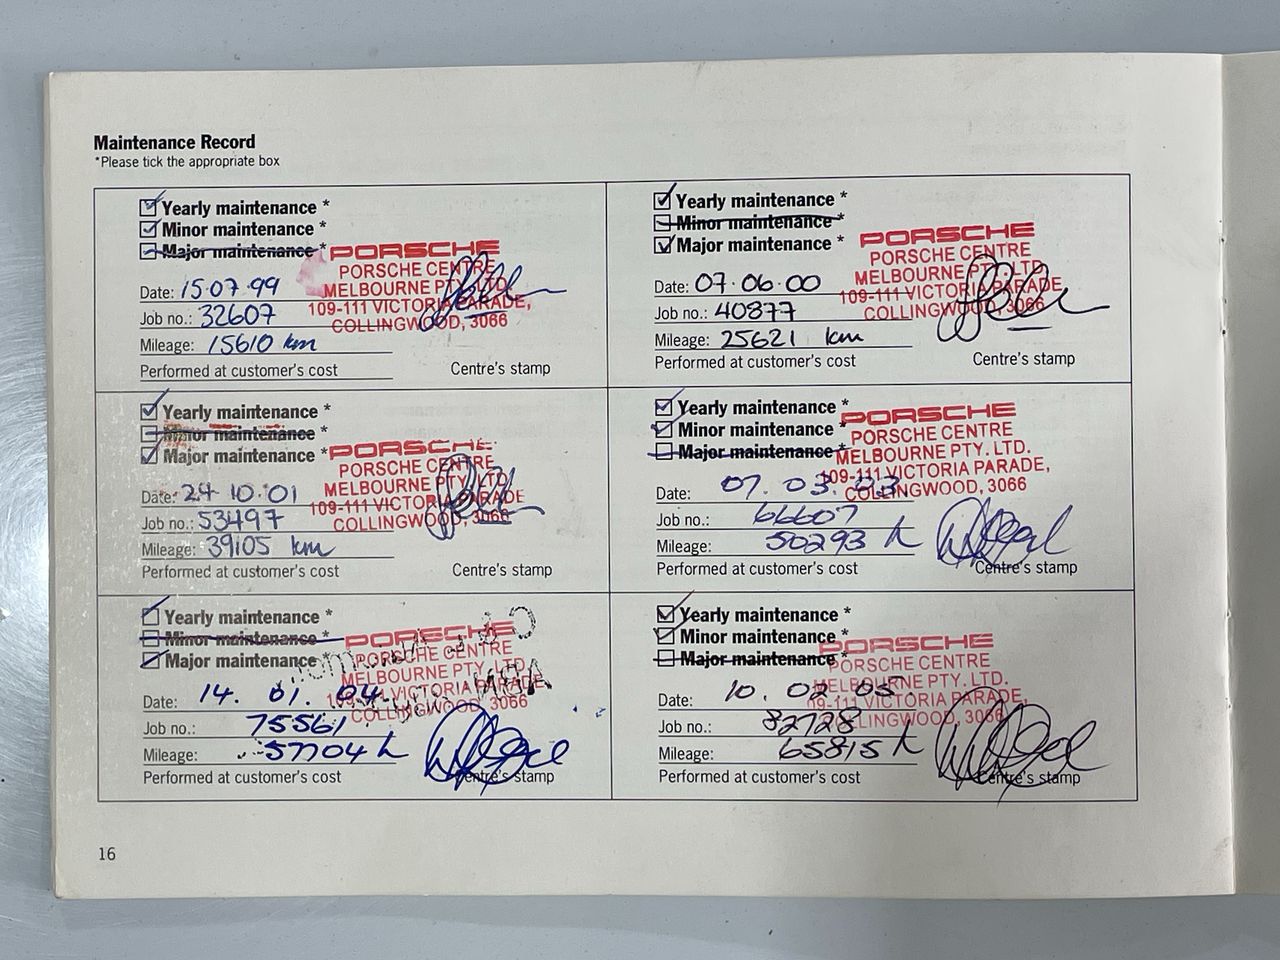 Maintenance Record
*Please tick the appropriate box
Yearly maintenance *
Minor maintenance *
Major maintenance *
PORSCHE
PORSCHE CENTRE
MELBOURNE PTY. LTD.
109-111 VICTORIA PARADE,
COLLINGWOOD, 3066
Date: 15.07.99
Job no.: 32607
Mileage: 15610 km
Performed at customer's cost
Centre's stamp
Yearly maintenance *
Minor maintenance *
Major maintenance *
PORSCHE
PORSCHE CENTRE
MELBOURNE PTY. LTD.
109-111 VICTORIA PARADE,
COLLINGWOOD, 3066
Date: 07.06.00
Job no.: 40877
Mileage: 25621 km
Performed at customer's cost
Centre's stamp
Yearly maintenance *
Minor maintenance *
Major maintenance *
PORSCHE
PORSCHE CENTRE
MELBOURNE PTY. LTD.
109-111 VICTORIA PARADE
COLLINGWOOD, 3066
Date: 24.10.01
Job no.: 53497
Mileage: 39105 km
Performed at customer's cost
Centre's stamp
Yearly maintenance *
Minor maintenance *
Major maintenance *
PORSCHE
PORSCHE CENTRE
MELBOURNE PTY. LTD.
109-111 VICTORIA PARADE,
COLLINGWOOD, 3066
Date: 07.03.03
Job no.: 66607
Mileage: 50293 k
Performed at customer's cost
Centre's stamp
Yearly maintenance *
Minor maintenance *
Major maintenance *
PORSCHE
PORSCHE CENTRE
MELBOURNE PTY. LTD.
109-111 VICTORIA PARADE,
COLLINGWOOD, 3066
Date: 14.01.04
Job no.: 75561
Mileage: 57704 k
Performed at customer's cost
Centre's stamp
Yearly maintenance *
Minor maintenance *
Major maintenance *
PORSCHE
PORSCHE CENTRE
MELBOURNE PTY. LTD.
109-111 VICTORIA PARADE,
COLLINGWOOD, 3066
Date: 10.02.05.
Job no.: 82728
Mileage: 65815 k
Performed at customer's cost
Centre's stamp
16